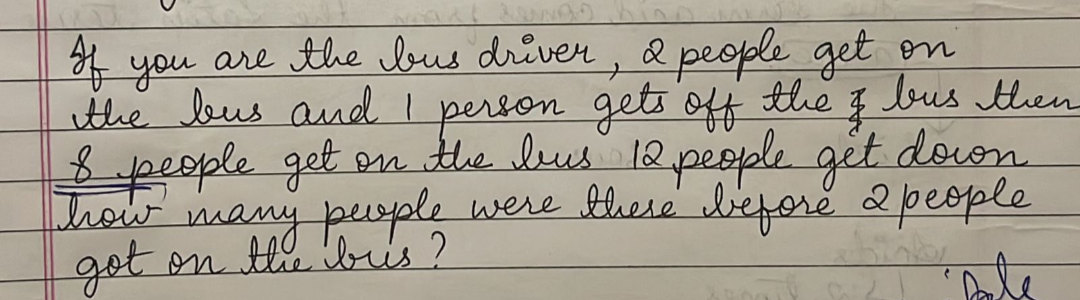 If you are the bus driver, 2 people get on
the bus and 1 person gets off the bus then
8 people get on the bus 12 people get down
how many people were there before 2 people
got on the bus?